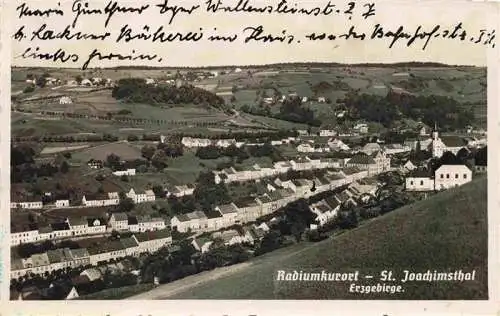 Maria Günther bger Wallensteinstr. 27
b. Lackner Bäckerei im Haus. von der Bahnhofstr.
links frein.
Radiumkurort – St. Joachimsthal
Erzgebirge.